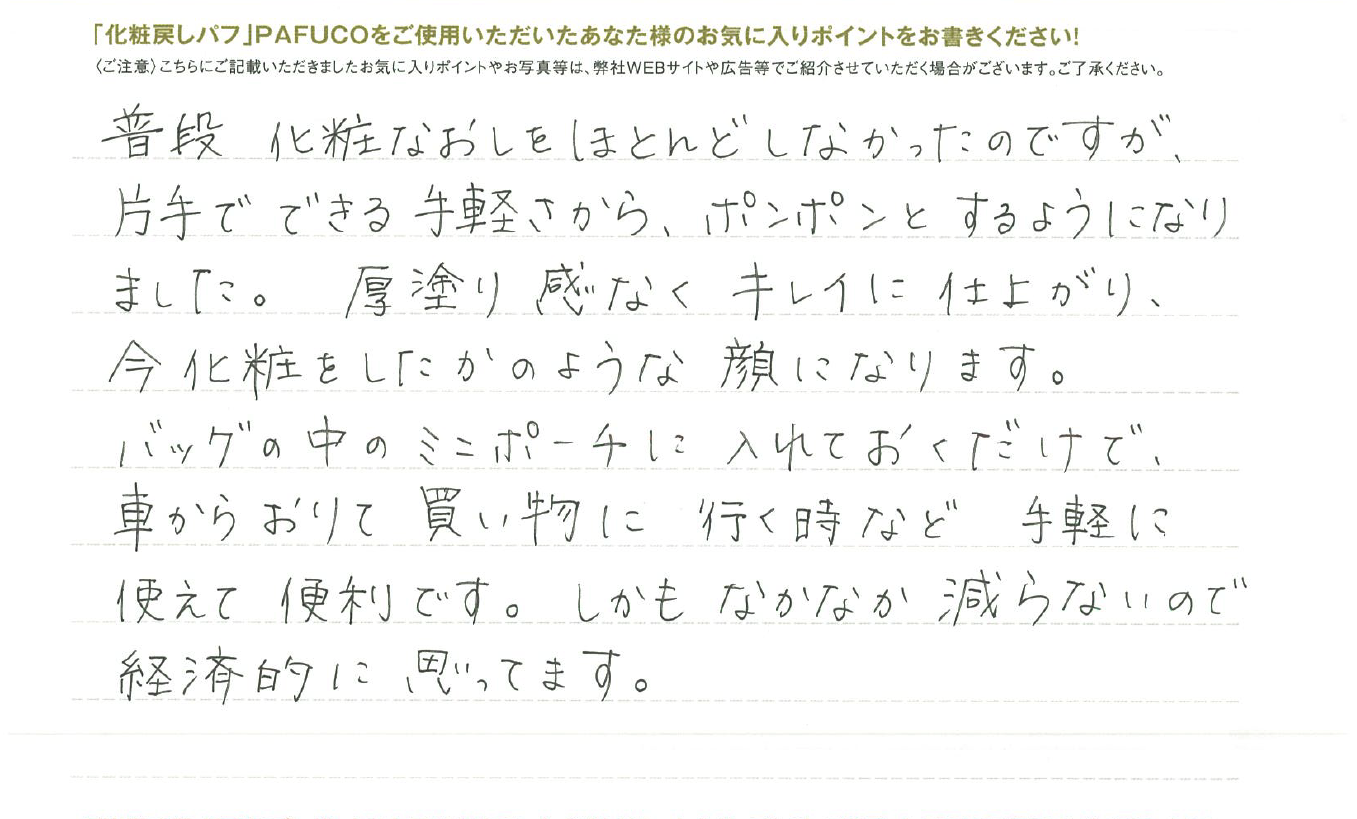 「化粧戻しパフ」PAFUCOをご使用いただいたあなた様のお気に入りポイントをお書きください!
〈ご注意〉こちらにご記載いただきましたお気に入りポイントやお写真等は、弊社WEBサイトや広告等でご紹介させていただく場合がございます。ご了承ください。
普段 化粧なおしをほとんどしなかったのですが、
片手で できる 手軽さから、ポンポンと するようになり
ました。 厚塗り 感なく キレイに 仕上がり、
今 化粧をしたかのような 顔になります。
バッグの 中の ミニポーチに 入れて おくだけで、
車から おりて 買い物に 行く時など 手軽に
使えて 便利です。しかも なかなか 減らないので
経済的に 思ってます。